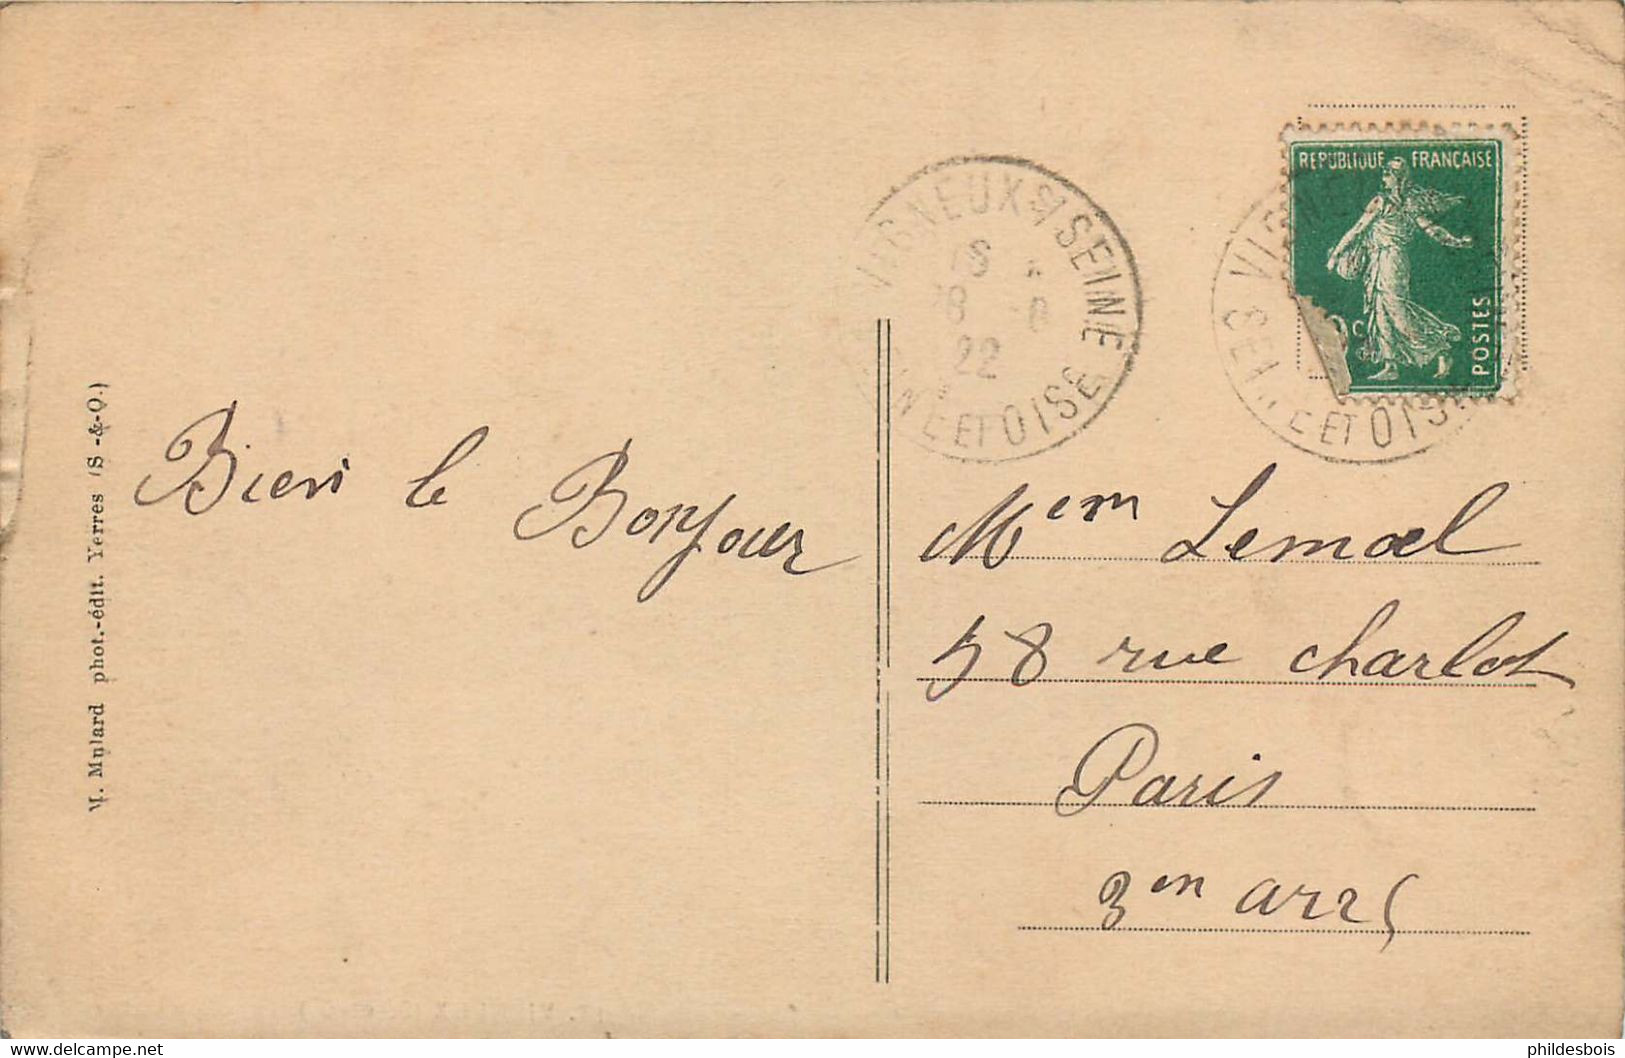 M. Mulard phot.-édit. Yerres (S.-&-O.)
Bien le Bonjour
VIGNEUX S/ SEINE
22
ET OISE
REPUBLIQUE FRANÇAISE
POSTES
ET OIS
Mem Lemoel
58 rue charlot
Paris
3em arr
phildesbois